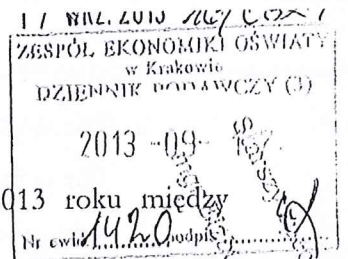 17 WRZ. 2013
ZESPÓŁ EKONOMIKI OŚWIATY
w Krakowie
DZIENNIK PODAWCZY (3)
2013 -09- 17
013 roku między
Nr ewid. 1420 podpis